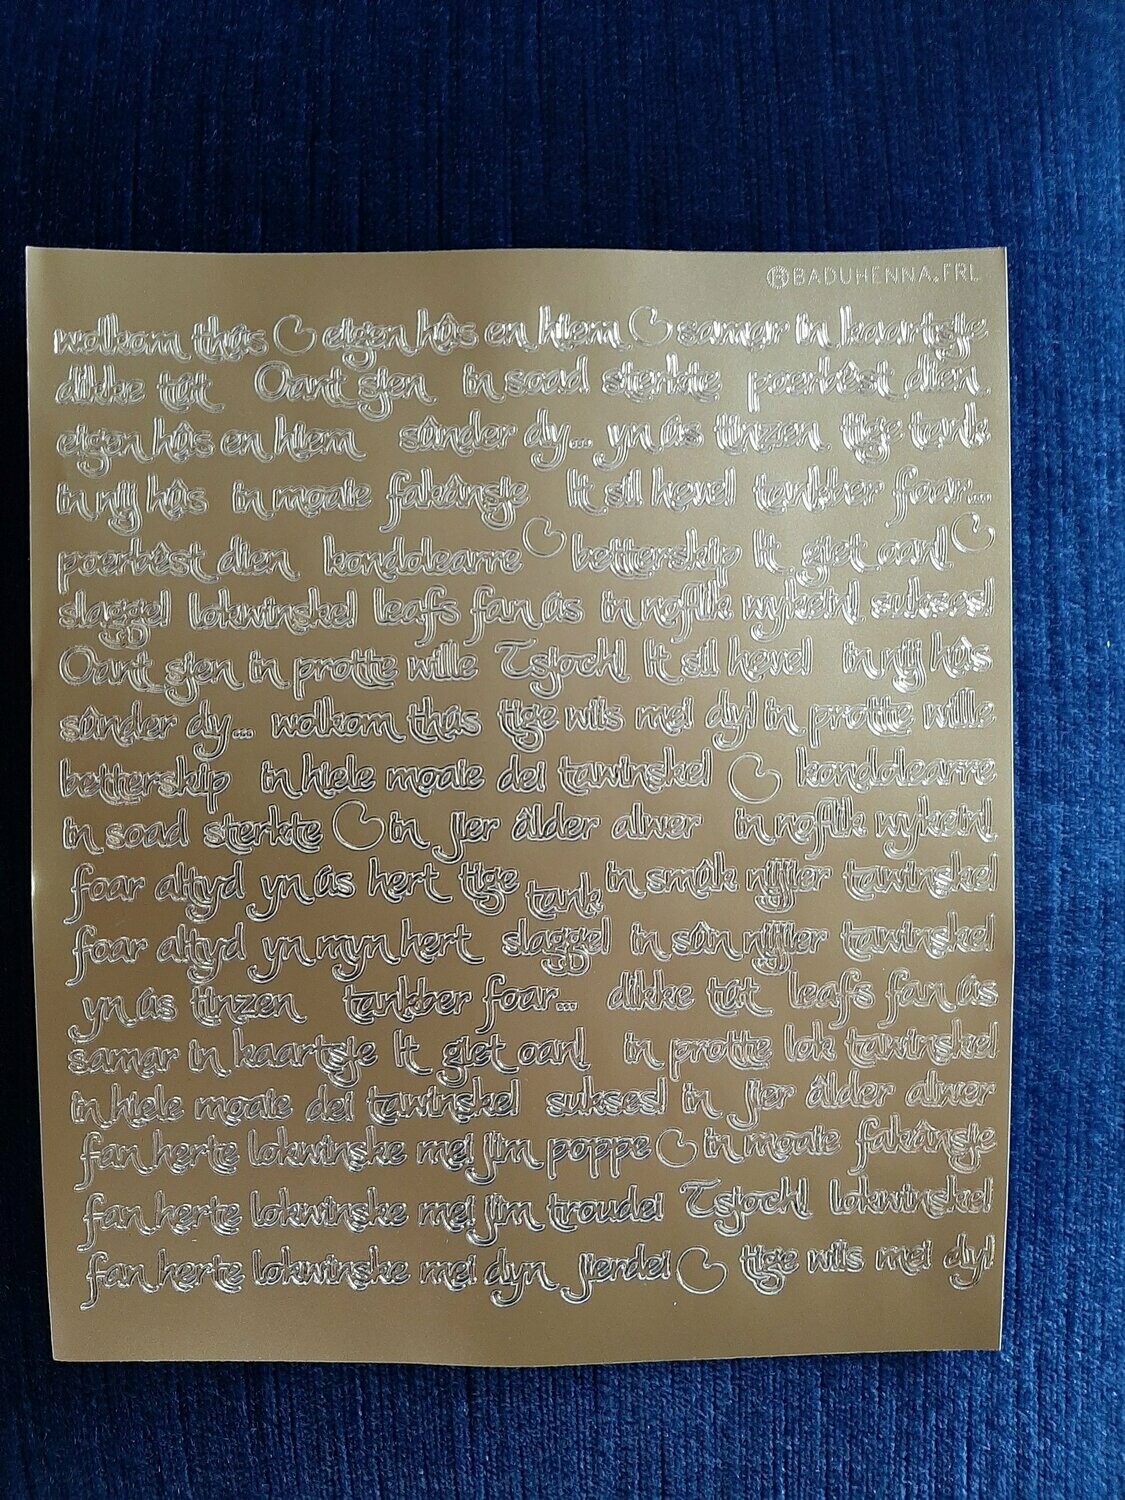 BADUHENNA.FRL
wolkom thús eigen hûs en hiem samar in kaartsje
dikke tút Oant sjen in soad sterkte poerbêst dien
eigen hûs en hiem sûnder dy... yn ús tinzen tige tank
in nij hûs in moaie fakânsje It sil heve! tankber foar...
poerbêst dien kondolearre betterskip It giet oan!
slagge! lokwinske! leafs fan ús in noflik wykein! sukses!
Oant sjen in protte wille Tsjoch! It sil heve! in nij hûs
sûnder dy... wolkom thús tige wiis mei dy! in protte wille
betterskip in hiele moaie dei tawinske! kondolearre
in soad sterkte in jier âlder alwer in noflik wykein!
foar altyd yn ús hert tige tank in smûk nijjier tawinske!
foar altyd yn myn hert slagge! in sûn nijjier tawinske!
yn ús tinzen tankber foar... dikke tút leafs fan ús
samar in kaartsje It giet oan! in protte lok tawinske!
in hiele moaie dei tawinske! sukses! in jier âlder alwer
fan herte lokwinske mei jim poppe in moaie fakânsje
fan herte lokwinske mei jim troudei Tsjoch! lokwinske!
fan herte lokwinske mei dyn jierdei tige wiis mei dy!